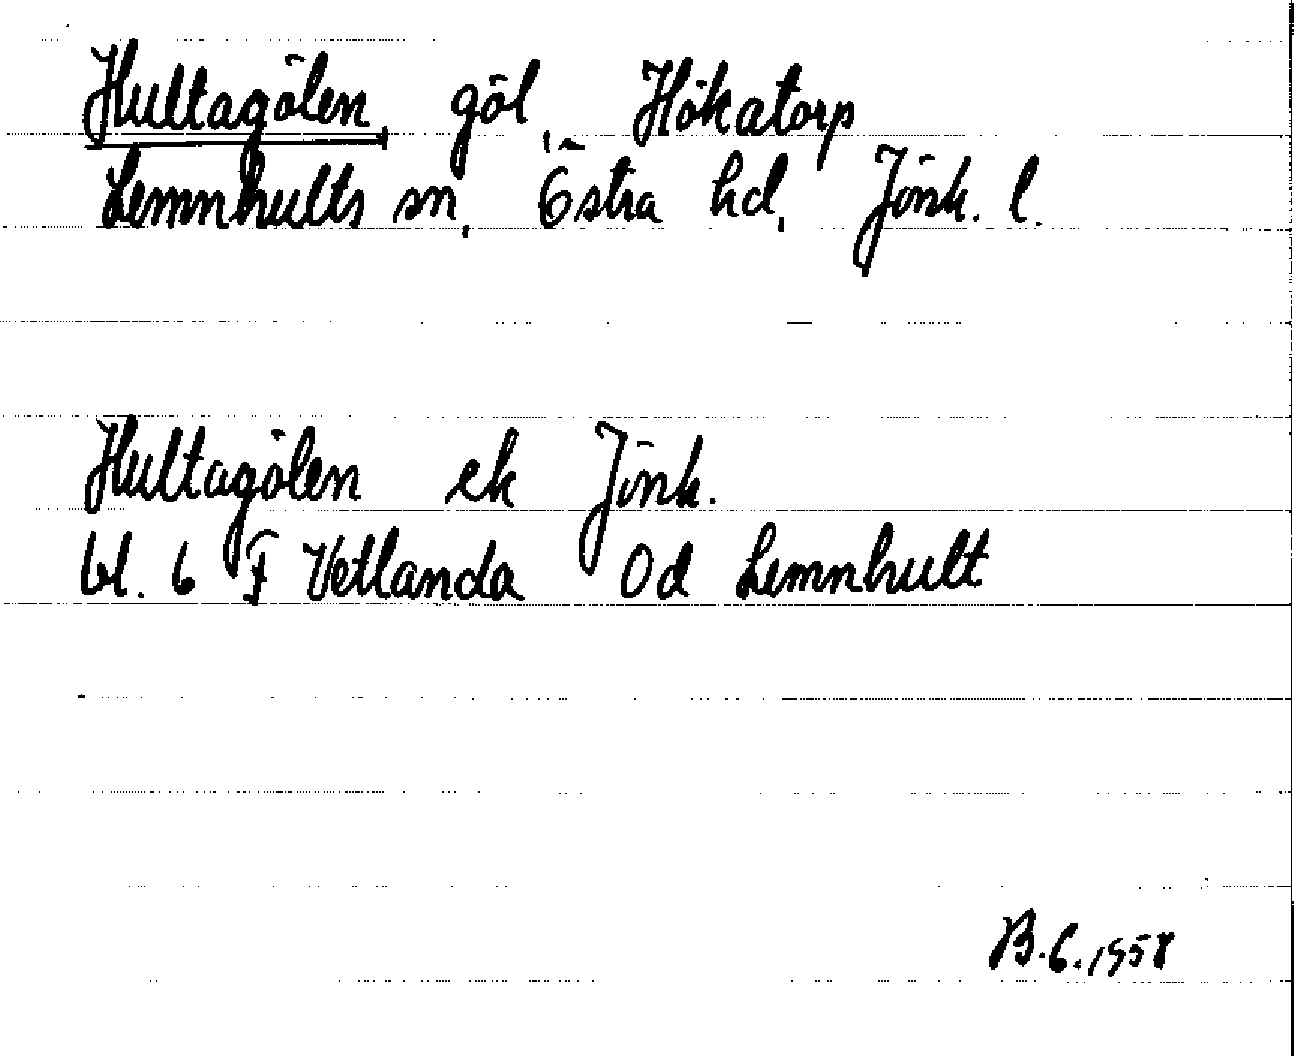 Hultagölen, göl, Hökatorp
Lemnhults sn, Östra hd, Jönk. l.
Hultagölen ek Jönk.
bl. 6 F Vetlanda Od Lemnhult
B.G.1958